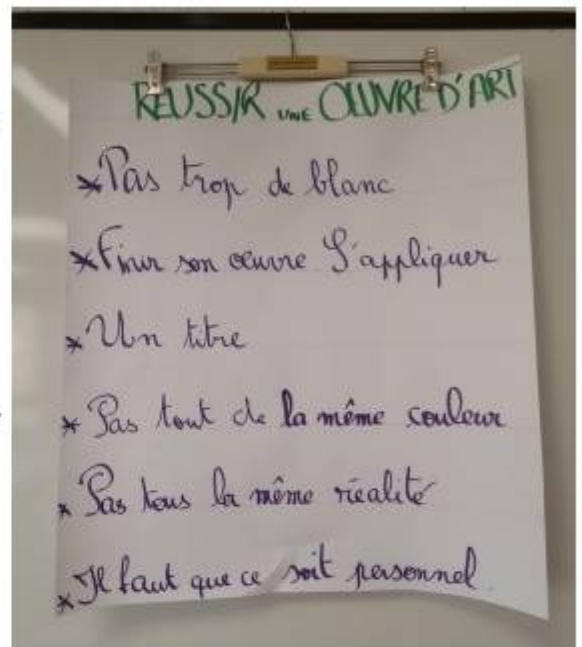 REUSSIR UNE OEUVRE D'ART
*Pas trop de blanc
*Finir son œuvre S'appliquer
*Un titre
*Pas tout de la même couleur
*Pas tous la même réalité
*Il faut que ce soit personnel.